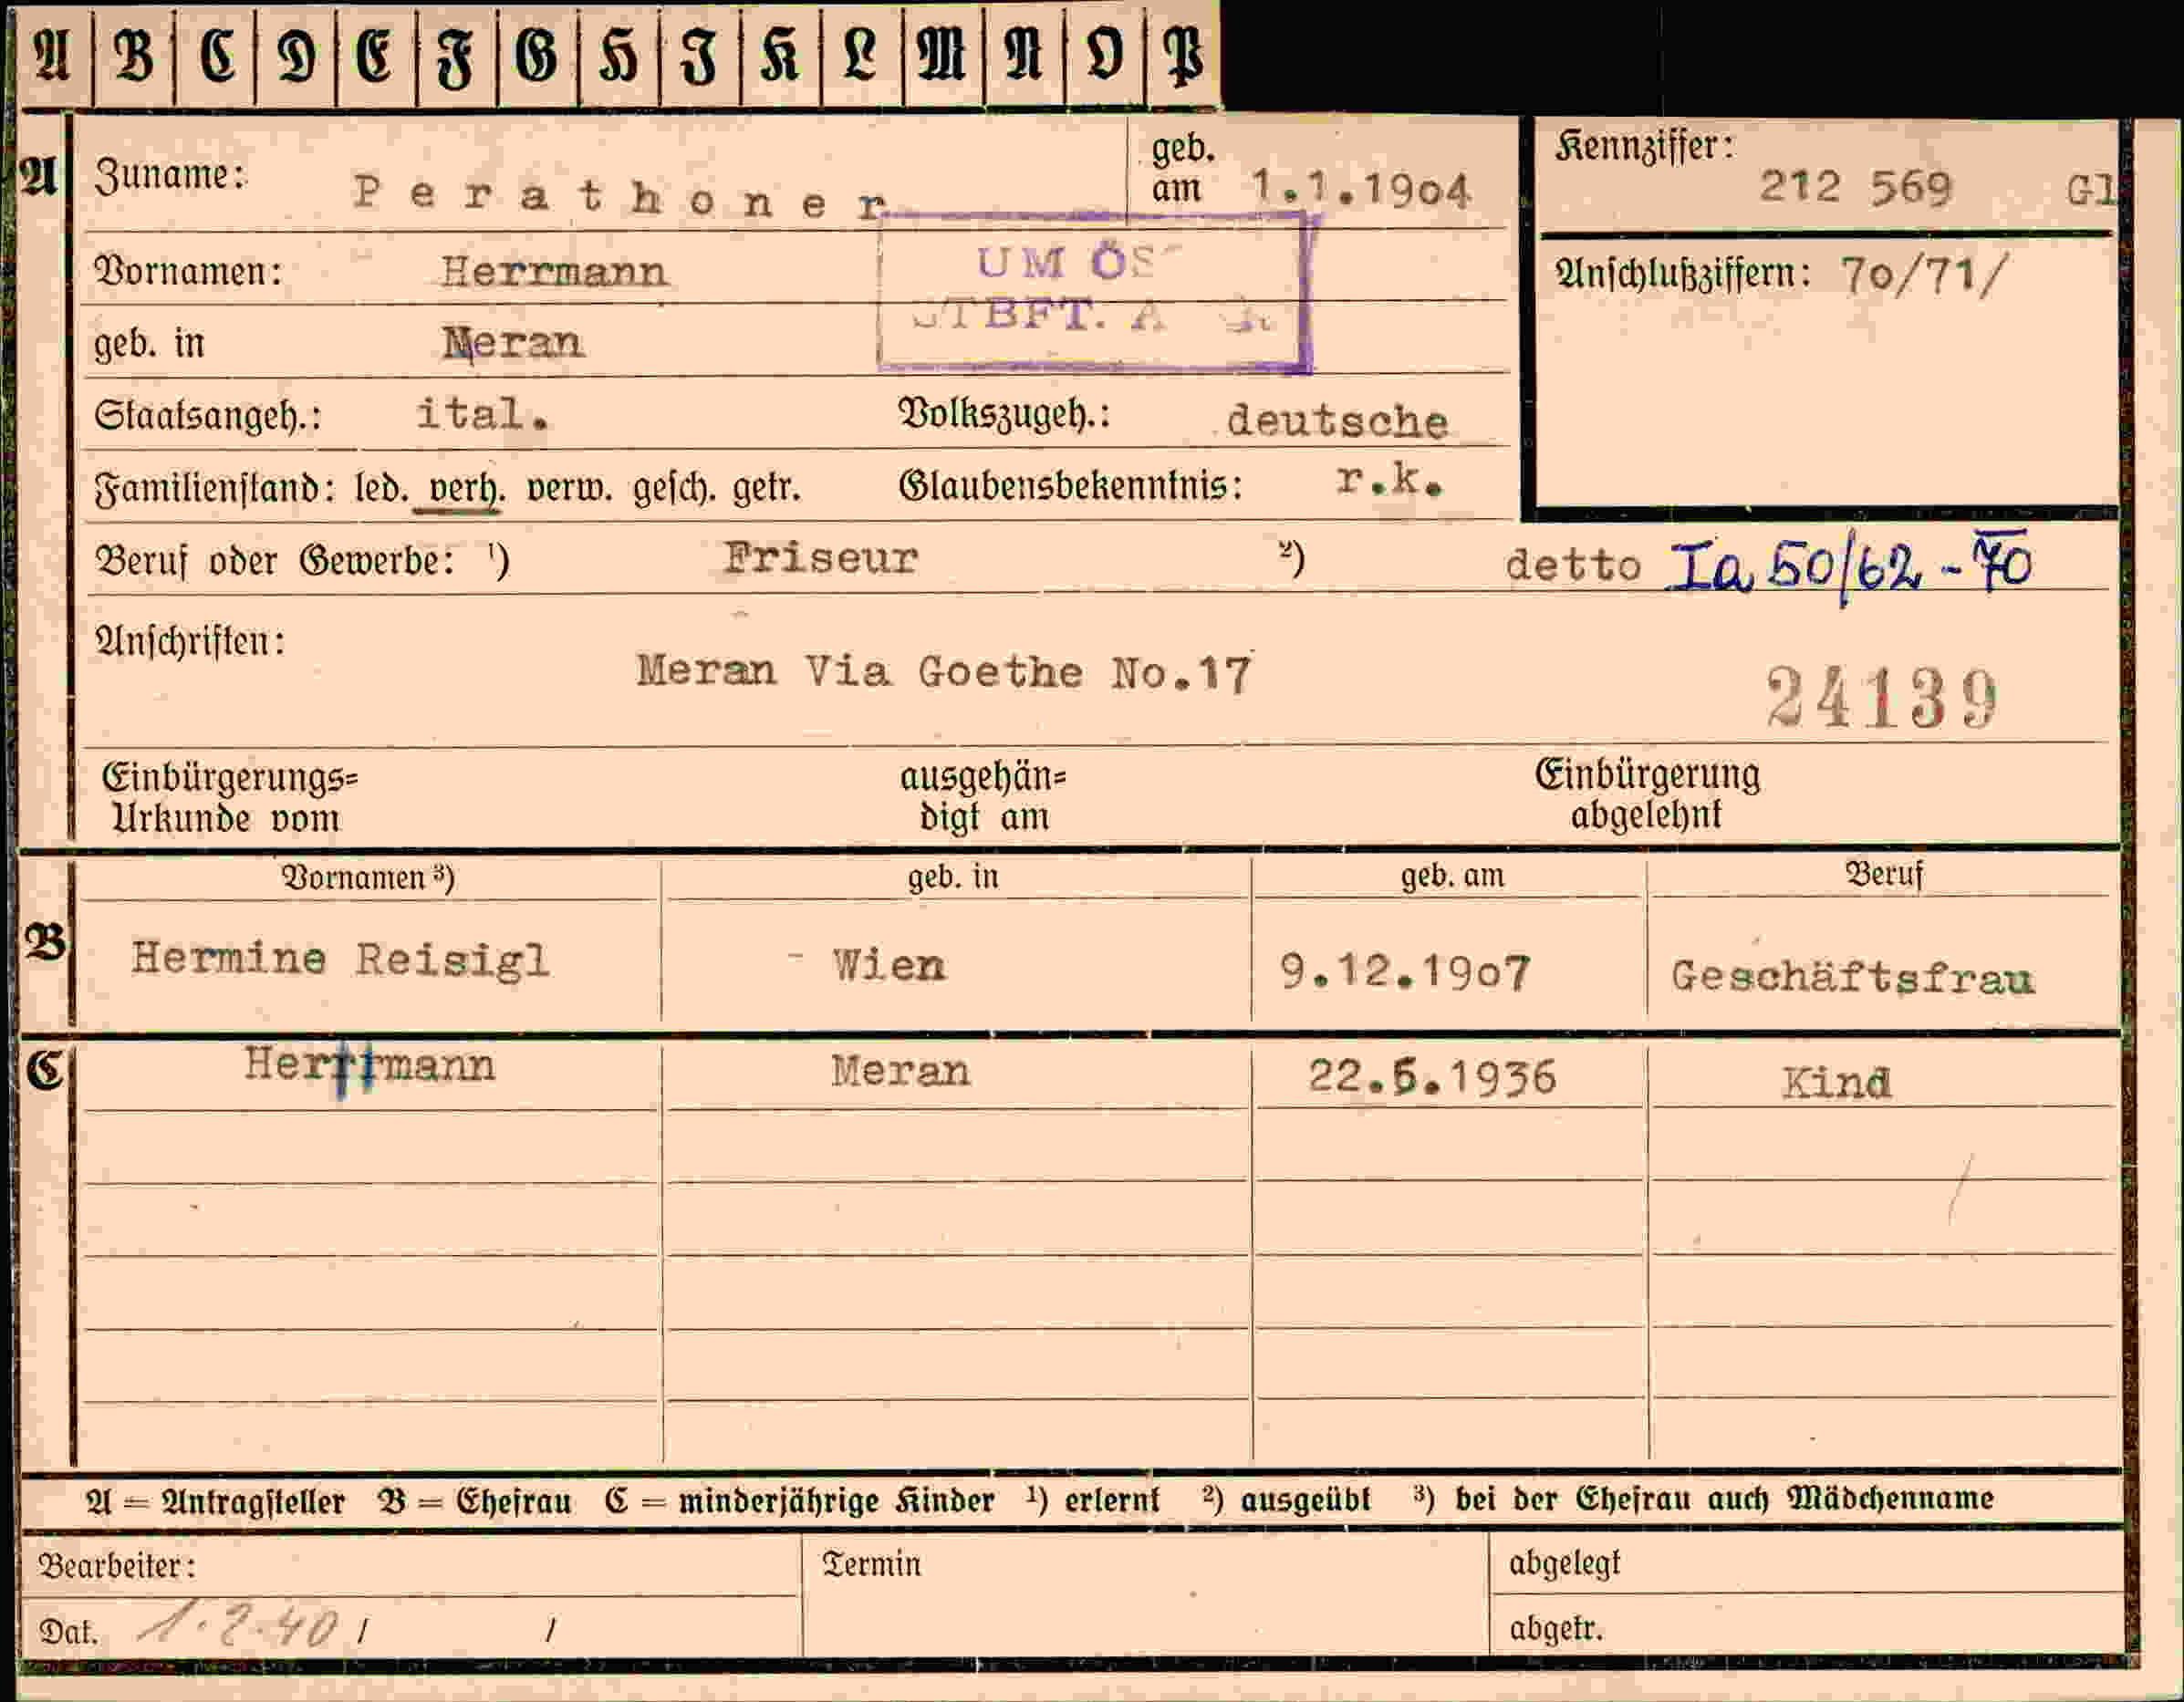 A B C D E F G H I K L M N O P
A Zuname: Perathoner geb. am 1.1.1904 Kennziffer: 212 569 Gl
Vornamen: Herrmann UM ÖS Anschlußziffern: 70/71/
TBFT. A
geb. in Meran
Staatsangeh.: ital. Volkszugeh.: deutsche
Familienstand: led. verh. verw. gesch. getr. Glaubensbekenntnis: r.k.
Beruf oder Gewerbe: ¹) Friseur ²) detto Ia 50/62-70
Anschriften:
Meran Via Goethe No.17 24139
Einbürgerungs= ausgehän= Einbürgerung
Urkunde vom digt am abgelehnt
Vornamen ³) geb. in geb. am Beruf
B Hermine Reisigl - Wien 9.12.1907 Geschäftsfrau
C Herrmann Meran 22.5.1936 Kind
A = Antragsteller B = Ehefrau C = minderjährige Kinder ¹) erlernt ²) ausgeübt ³) bei der Ehefrau auch Mädchenname
Bearbeiter: Termin abgelegt
Dat. 1.2.40 / / abgetr.